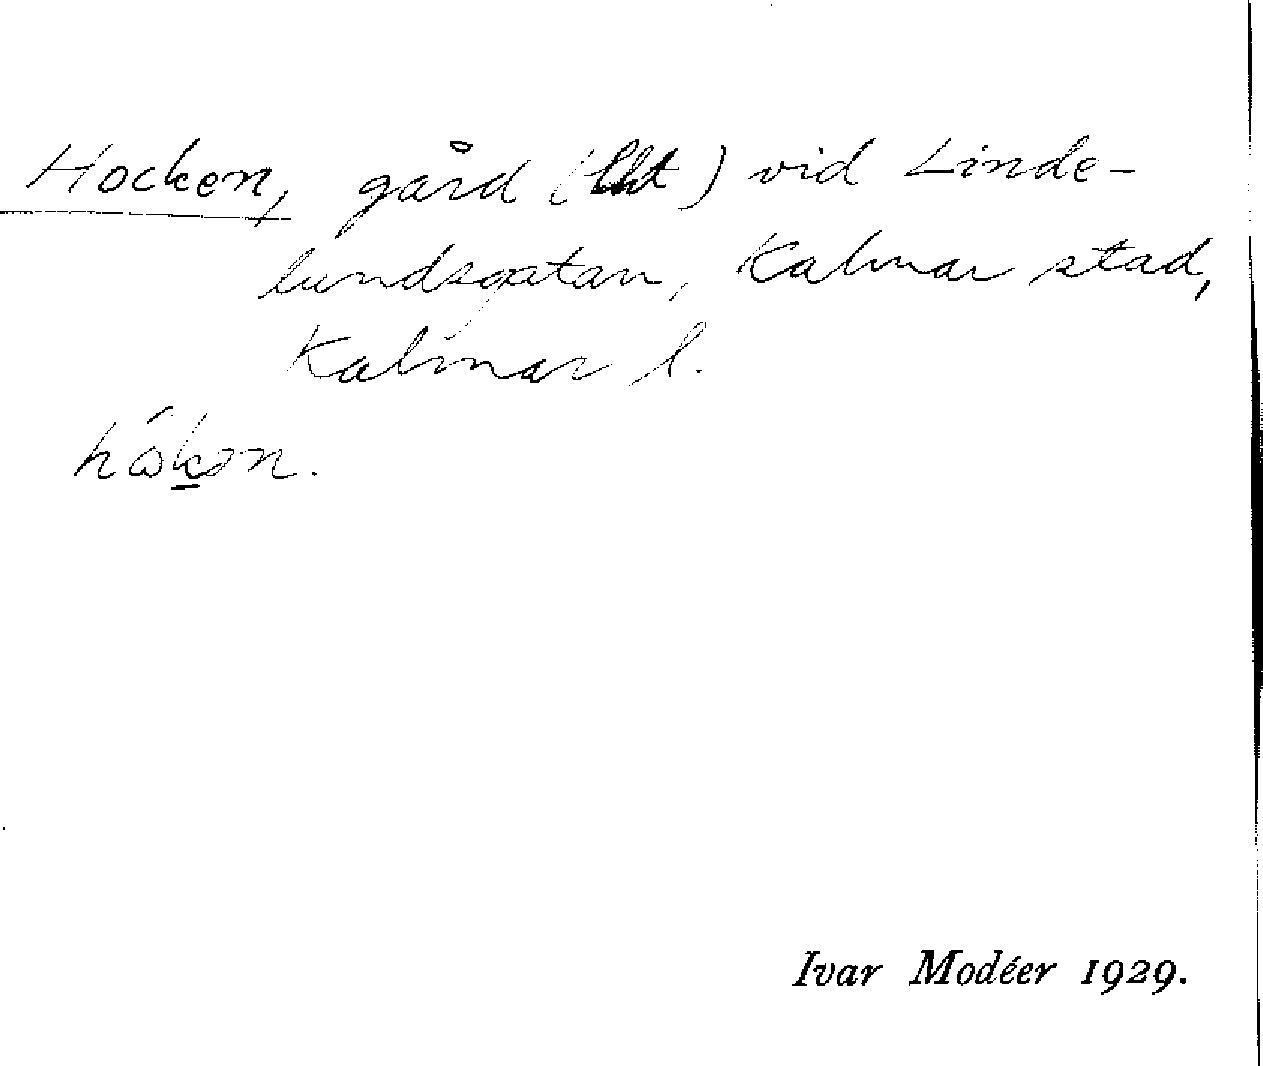 Hocken, gård (lht) vid Linde-
lundsgatan, Kalmar stad,
Kalmar l.
Ivar Modéer 1929.